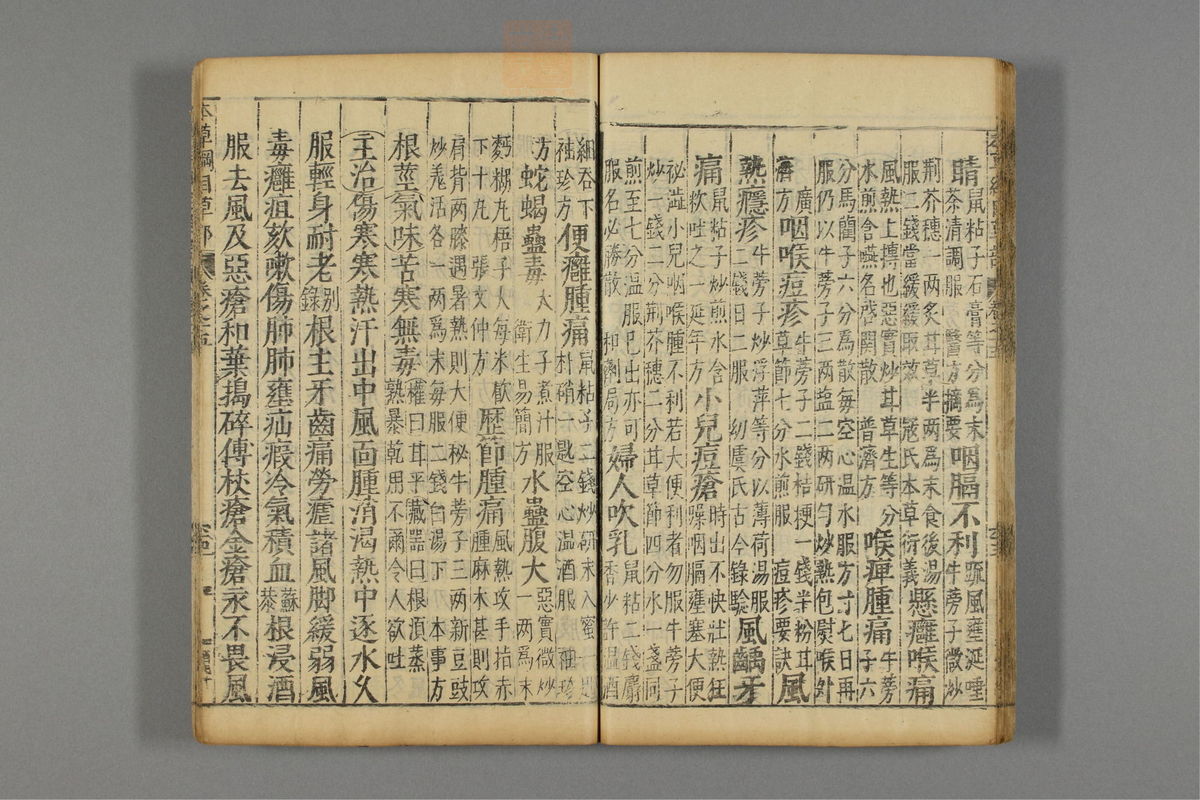 睛鼠粘子石膏等分爲末
茶清調服 醫方摘要咽膈不利疏風壅涎唾
牛蒡子微炒
荆芥穗一兩炙甘草半兩爲末食後湯
服二錢當緩緩取效 寇氏本草衍義懸癰喉痛
風熱上摶也惡實炒甘草生等分
水煎含嚥名啓關散 普濟方喉痺腫痛牛蒡
子六
分馬藺子六分爲散每空心温水服方寸七日再
服仍以牛蒡子三兩盐二兩研勻炒熱包熨喉外
廣
濟方咽喉痘疹牛蒡子二錢桔梗一錢半粉甘
草節七分水煎服 痘疹要訣風
熱癮疹牛蒡子炒浮萍等分以薄荷湯服
二錢日二服 初虞氏古今錄驗風齲牙
痛鼠粘子炒煎水含
軟吐之 延年方小兒痘瘡時出不快壯熱狂
燥咽膈壅塞大便
祕澁小兒咽喉腫不利若大便利者勿服牛蒡子
炒一錢二分荆芥穗二分甘草節四分水一盞同
煎至七分温服已出亦可
服名必勝散 和劑局方婦人吹乳鼠粘二錢麝
香少許温酒
細吞下
袖珍方便癰腫痛鼠粘子二錢炒研末入蜜一匙
朴硝一匙空心温酒服 袖珍
方蛇蝎蠱毒大力子煮汁服
衛生易簡方水蠱腹大惡實微炒
一兩爲末
麪糊丸梧子大每米飲
下十丸 張文仲方歷節腫痛風熱攻手指赤
腫麻木甚則攻
肩背兩膝遇暑熱則大便秘牛蒡子三兩新豆豉
炒羌活各一兩爲末每服二錢白湯下 本事方
根莖氣味苦寒無毒權曰甘平藏噐曰根須蒸
熟暴乾用不爾令人欲吐
主治傷寒寒熱汗出中風面腫消渴熱中逐水久
服輕身耐老别
錄根主牙齒痛勞瘧諸風脚緩弱風
毒癰疽欬嗽傷肺肺壅疝瘕冷氣積血蘇
恭根浸酒
服去風及惡瘡和葉搗碎傅杖瘡金瘡永不畏風
本草綱目草部 卷之十五